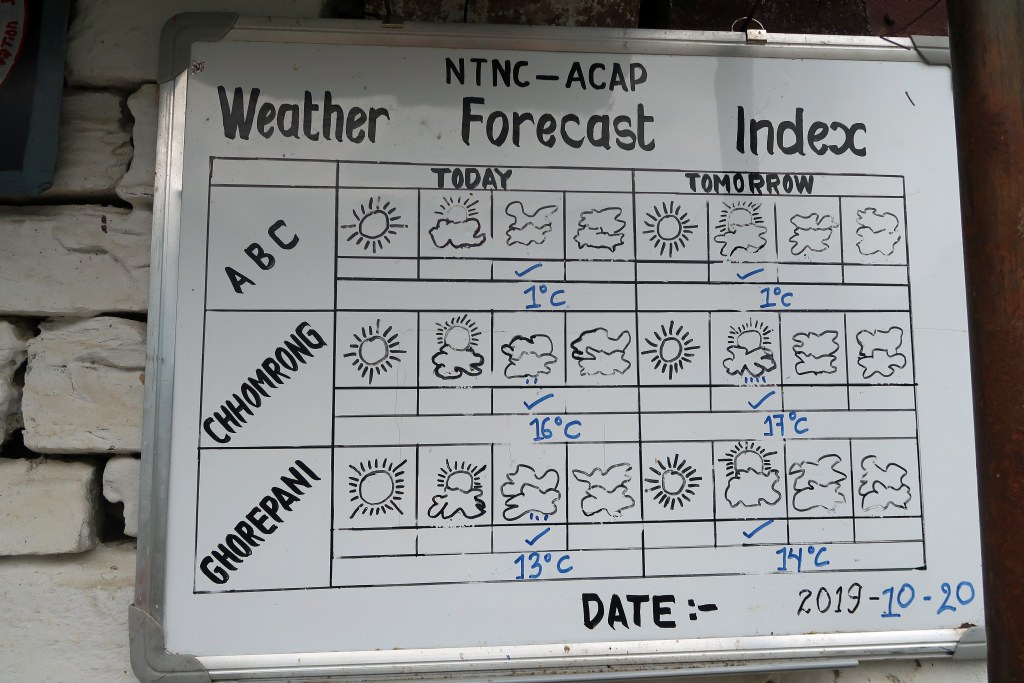 NTNC-ACAP
Weather Forecast Index
TODAY TOMORROW
ABC
1°C 1°C
CHHOMRONG
16°C 17°C
GHOREPANI
13°C 14°C
DATE:- 2019-10-20